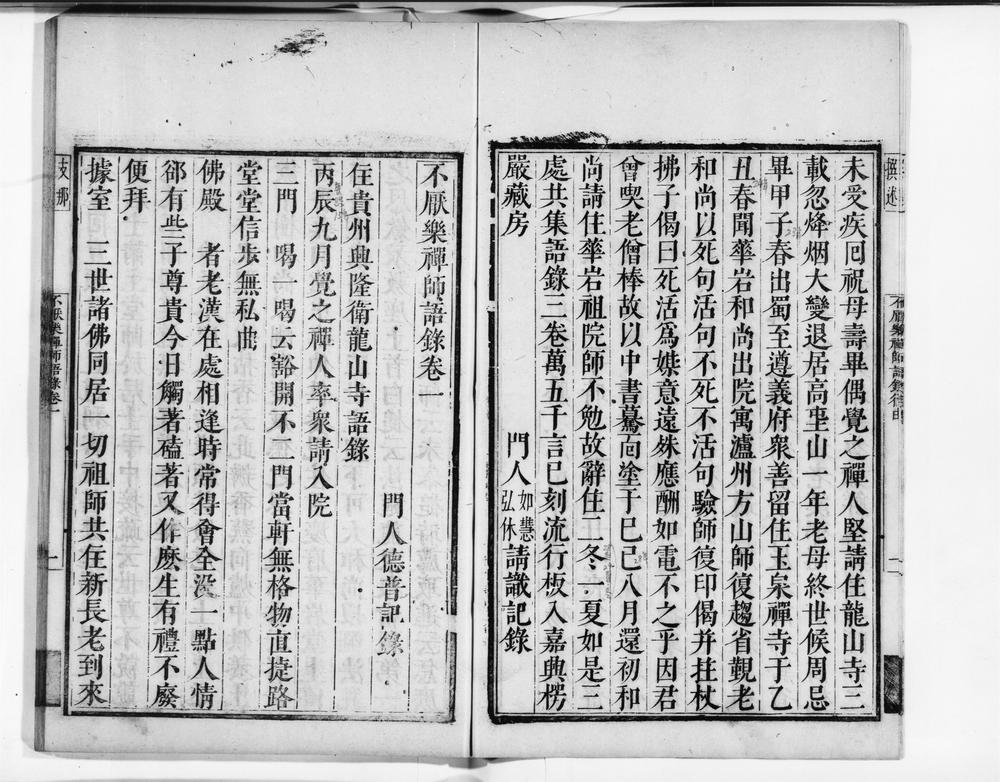 未受疾囘祝母壽畢偶覺之禪人堅請住龍山寺三
載忽烽烟大變退居高㘴山一年老母終世候周忌
畢甲子春出蜀至遵義府衆善留住玉泉禪寺于乙
丑春聞華岩和尚出院寓瀘州方山師復趨省覲老
和尚以死句活句不死不活句驗師復印偈并拄杖
拂子偈曰死活爲媒意遠殊應酬如電不之乎因君
曾喫老僧棒故以中書驀面塗于己巳八月還初和
尚請住華岩祖院師不勉故辭住二冬一夏如是三
處共集語錄三卷萬五千言已刻流行板入嘉興楞
嚴藏房
門人如慧弘休請識記錄
不厭樂禪師語錄卷一
門人德普記錄
住貴州興隆衛龍山寺語錄
丙辰九月覺之禪人率衆請入院
三門　喝一喝云豁開不二門當軒無格物直捷路
堂堂信步無私曲
佛殿　者老漢在處相逢時常得會全沒一點人情
郤有些子尊貴今日觸著磕著又作麽生有禮不廢
便拜
據室　三世諸佛同居一切祖師共住新長老到來
不厭樂禪師語錄卷一
一